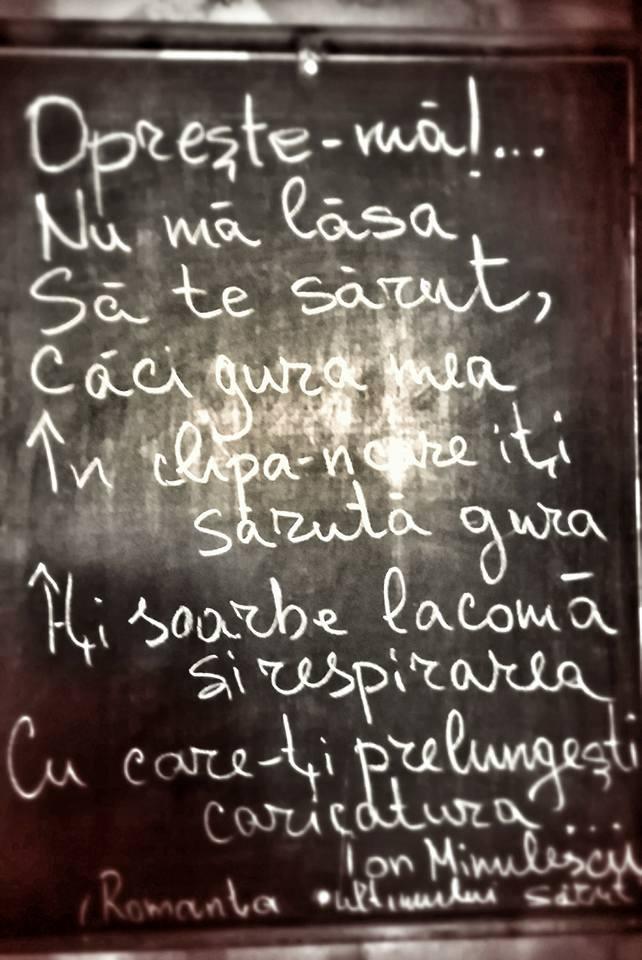 Oprește-mă!...
Nu mă lăsa
Să te sărut,
Căci gura mea
În clipa-n care iți
sărută gura
Îți soarbe lacomă
și respirarea
Cu care-ți prelungești
caricatura...
Ion Minulescu
Romanta ultimului sărut